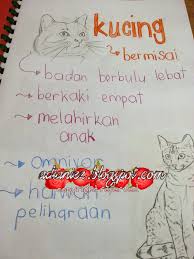 kucing
bermisai
badan berbulu lebat
berkaki empat
melahirkan
anak
omnivor
haiwan
peliharaan